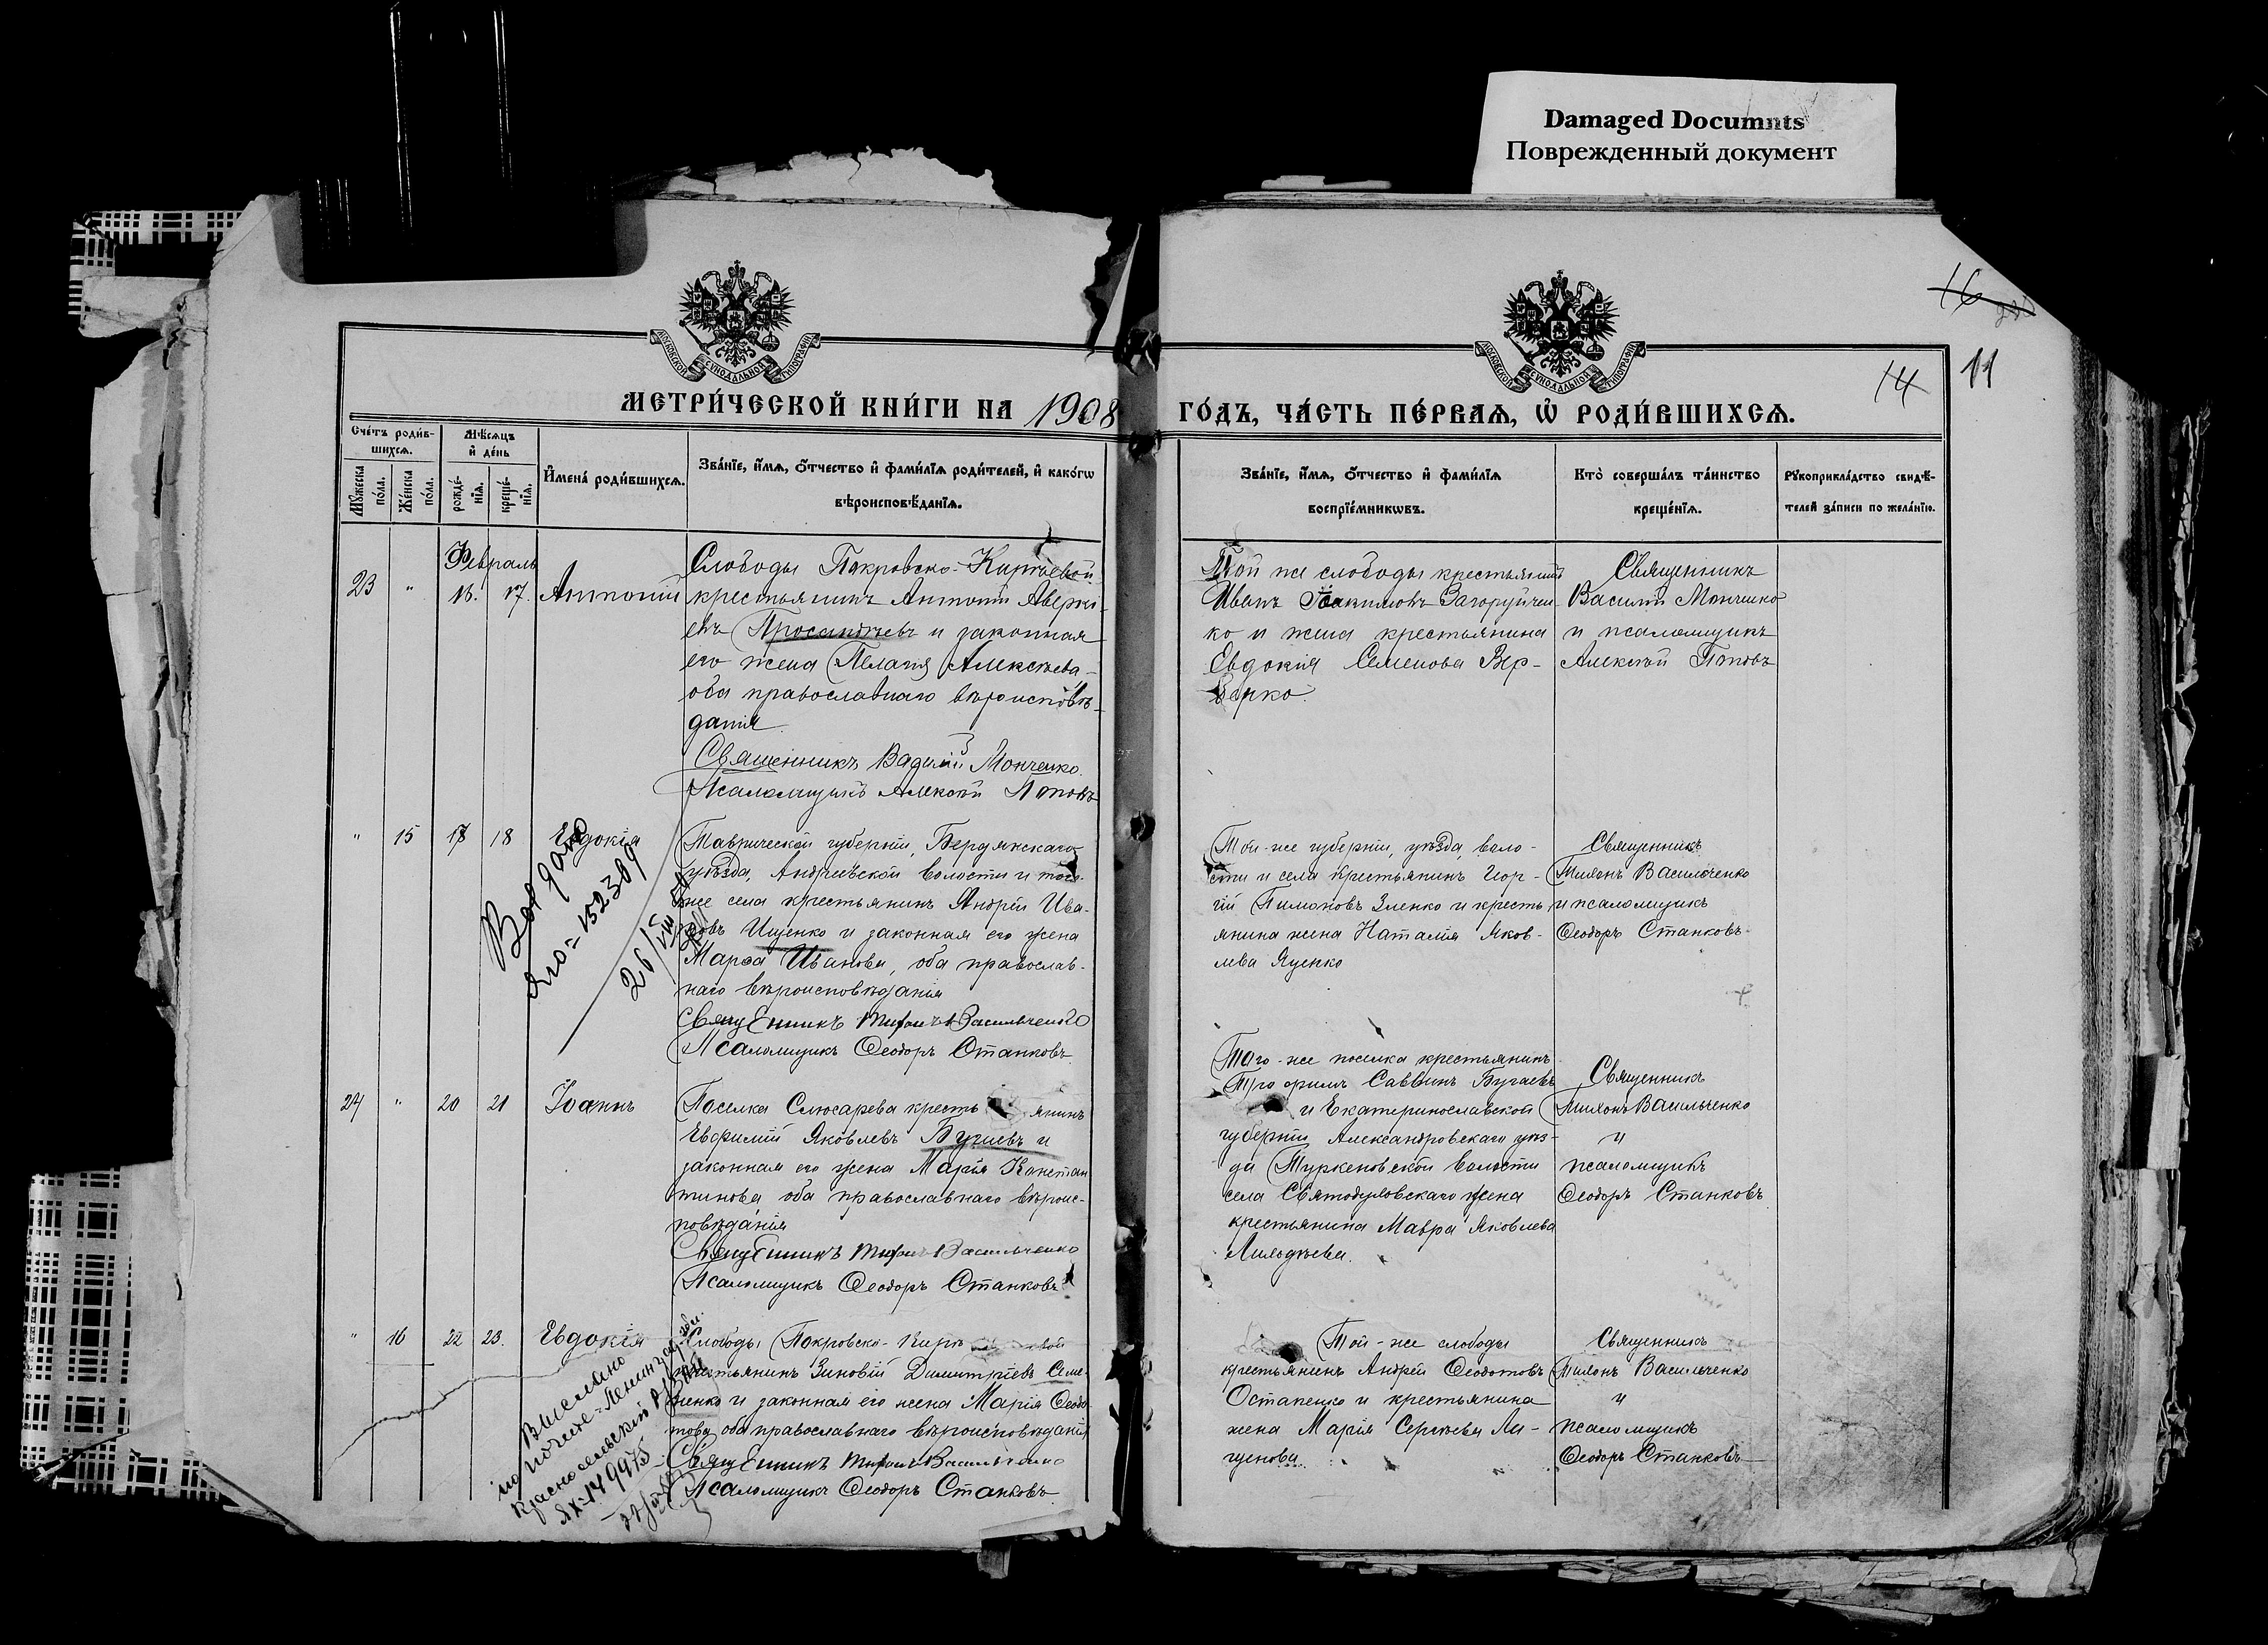 Damaged Documnts
Поврежденный документ
16
14
11
МОСКОВСКОЙ СѴНОДАЛЬНОЙ ТИПОГРАФІИ
МОСКОВСКОЙ СѴНОДАЛЬНОЙ ТИПОГРАФІИ
МЕТРИ́ЧЕСКОЙ КНИ́ГИ НА 1908 ГО́ДЪ, ЧА́СТЬ ПЕ́РВАЯ, Ѡ҆ РОДИ́ВШИХСЯ.
Сче́тъ роди́в-
шихся.
Мѣ́сяцъ
и҆ де́нь
Мꙋ́жеска по́ла.
Же́нска по́ла.
рожде́-
нїѧ.
креще́-
нїѧ.
И҆мена̀ роди́вшихсѧ.
Зва́нїе, и҆́мѧ, ѻ҆́тчество и҆ фами́лїѧ роди́телей, и҆ како́гѡ
вѣроисповѣ́данїѧ.
Зва́нїе, и҆́мѧ, ѻ҆́тчество и҆ фами́лїѧ
воспрїе́мникѡвъ.
Кто̀ соверша́лъ та́инство
креще́нїѧ.
Рꙋкоприкла́дство свидѣ́-
телей за́писи по жела́нїю.
Февраль
23 " 16. 17. Антоній
Слободы Покровско-
крестьянинъ Антоній Аверкі-
евъ и законная
его жена Пелагія Алексѣева,
оба православнаго вѣроисповѣ-
данія
Священникъ Василій Монченко.
Псаломщикъ Алексѣй Поповъ
Той же слободы крестьянинъ
Иванъ Іоакимовъ Загоруйчен-
ко и жена крестьянина
Евдокія Семенова Вер-
Священникъ
Василій Монченко
и псаломщикъ
Алексѣй Поповъ
" 15 17 18 Евдокія
Таврической губерніи, Бердянскаго
уѣзда, Андреевской волости и того-
же села крестьянинъ Андрей Ива-
новъ Ищенко и законная его жена
Марѳа Иванова, оба православ-
наго вѣроисповѣданія
Священникъ Василъченко
Псаломщикъ Ѳеодоръ Станковъ
Той-же губерніи, уѣзда, воло-
сти и села крестьянинъ Геор-
гій Пимоновъ Зленко и кресть-
янина жена Наталія Яков-
лева Яценко
Священникъ
Василъченко
и псаломщикъ
Ѳеодоръ Станковъ
ЯЮ-152309
26/VIII
24 " 20 21 Іоаннъ
Поселка Слюсарева крестьянинъ
Евфимій Яковлевъ Бугаевъ и
законная его жена Марія Констан-
тинова оба православнаго вѣроис-
повѣданія
Священникъ Василъченко
Псаломщикъ Ѳеодоръ Станковъ
Того-же поселка крестьянинъ
Трофимъ Саввинъ Бугаевъ
и Екатеринославской
губерніи Александровскаго уѣз-
да Туркеновской волости
села жена
крестьянина Мавра Яковлева
Священникъ
Василъченко
и
псаломщикъ
Ѳеодоръ Станковъ
" 16 22 23. Евдокія
Слободы Покровско-
крестьянинъ Зиновій Димитріевъ Семе-
ненко и законная его жена Марія Ѳеодо-
това оба православнаго вѣроисповѣданія
Священникъ Василъченко
Псаломщикъ Ѳеодоръ Станковъ
Той-же слободы
крестьянинъ Андрей Ѳеодотовъ
Остапенко и крестьянина
жена Марія Сергѣева Ли-
Священникъ
Василъченко
и
псаломщикъ
Ѳеодоръ Станковъ
Выслано
по почте - Ленинградской
Красносельский